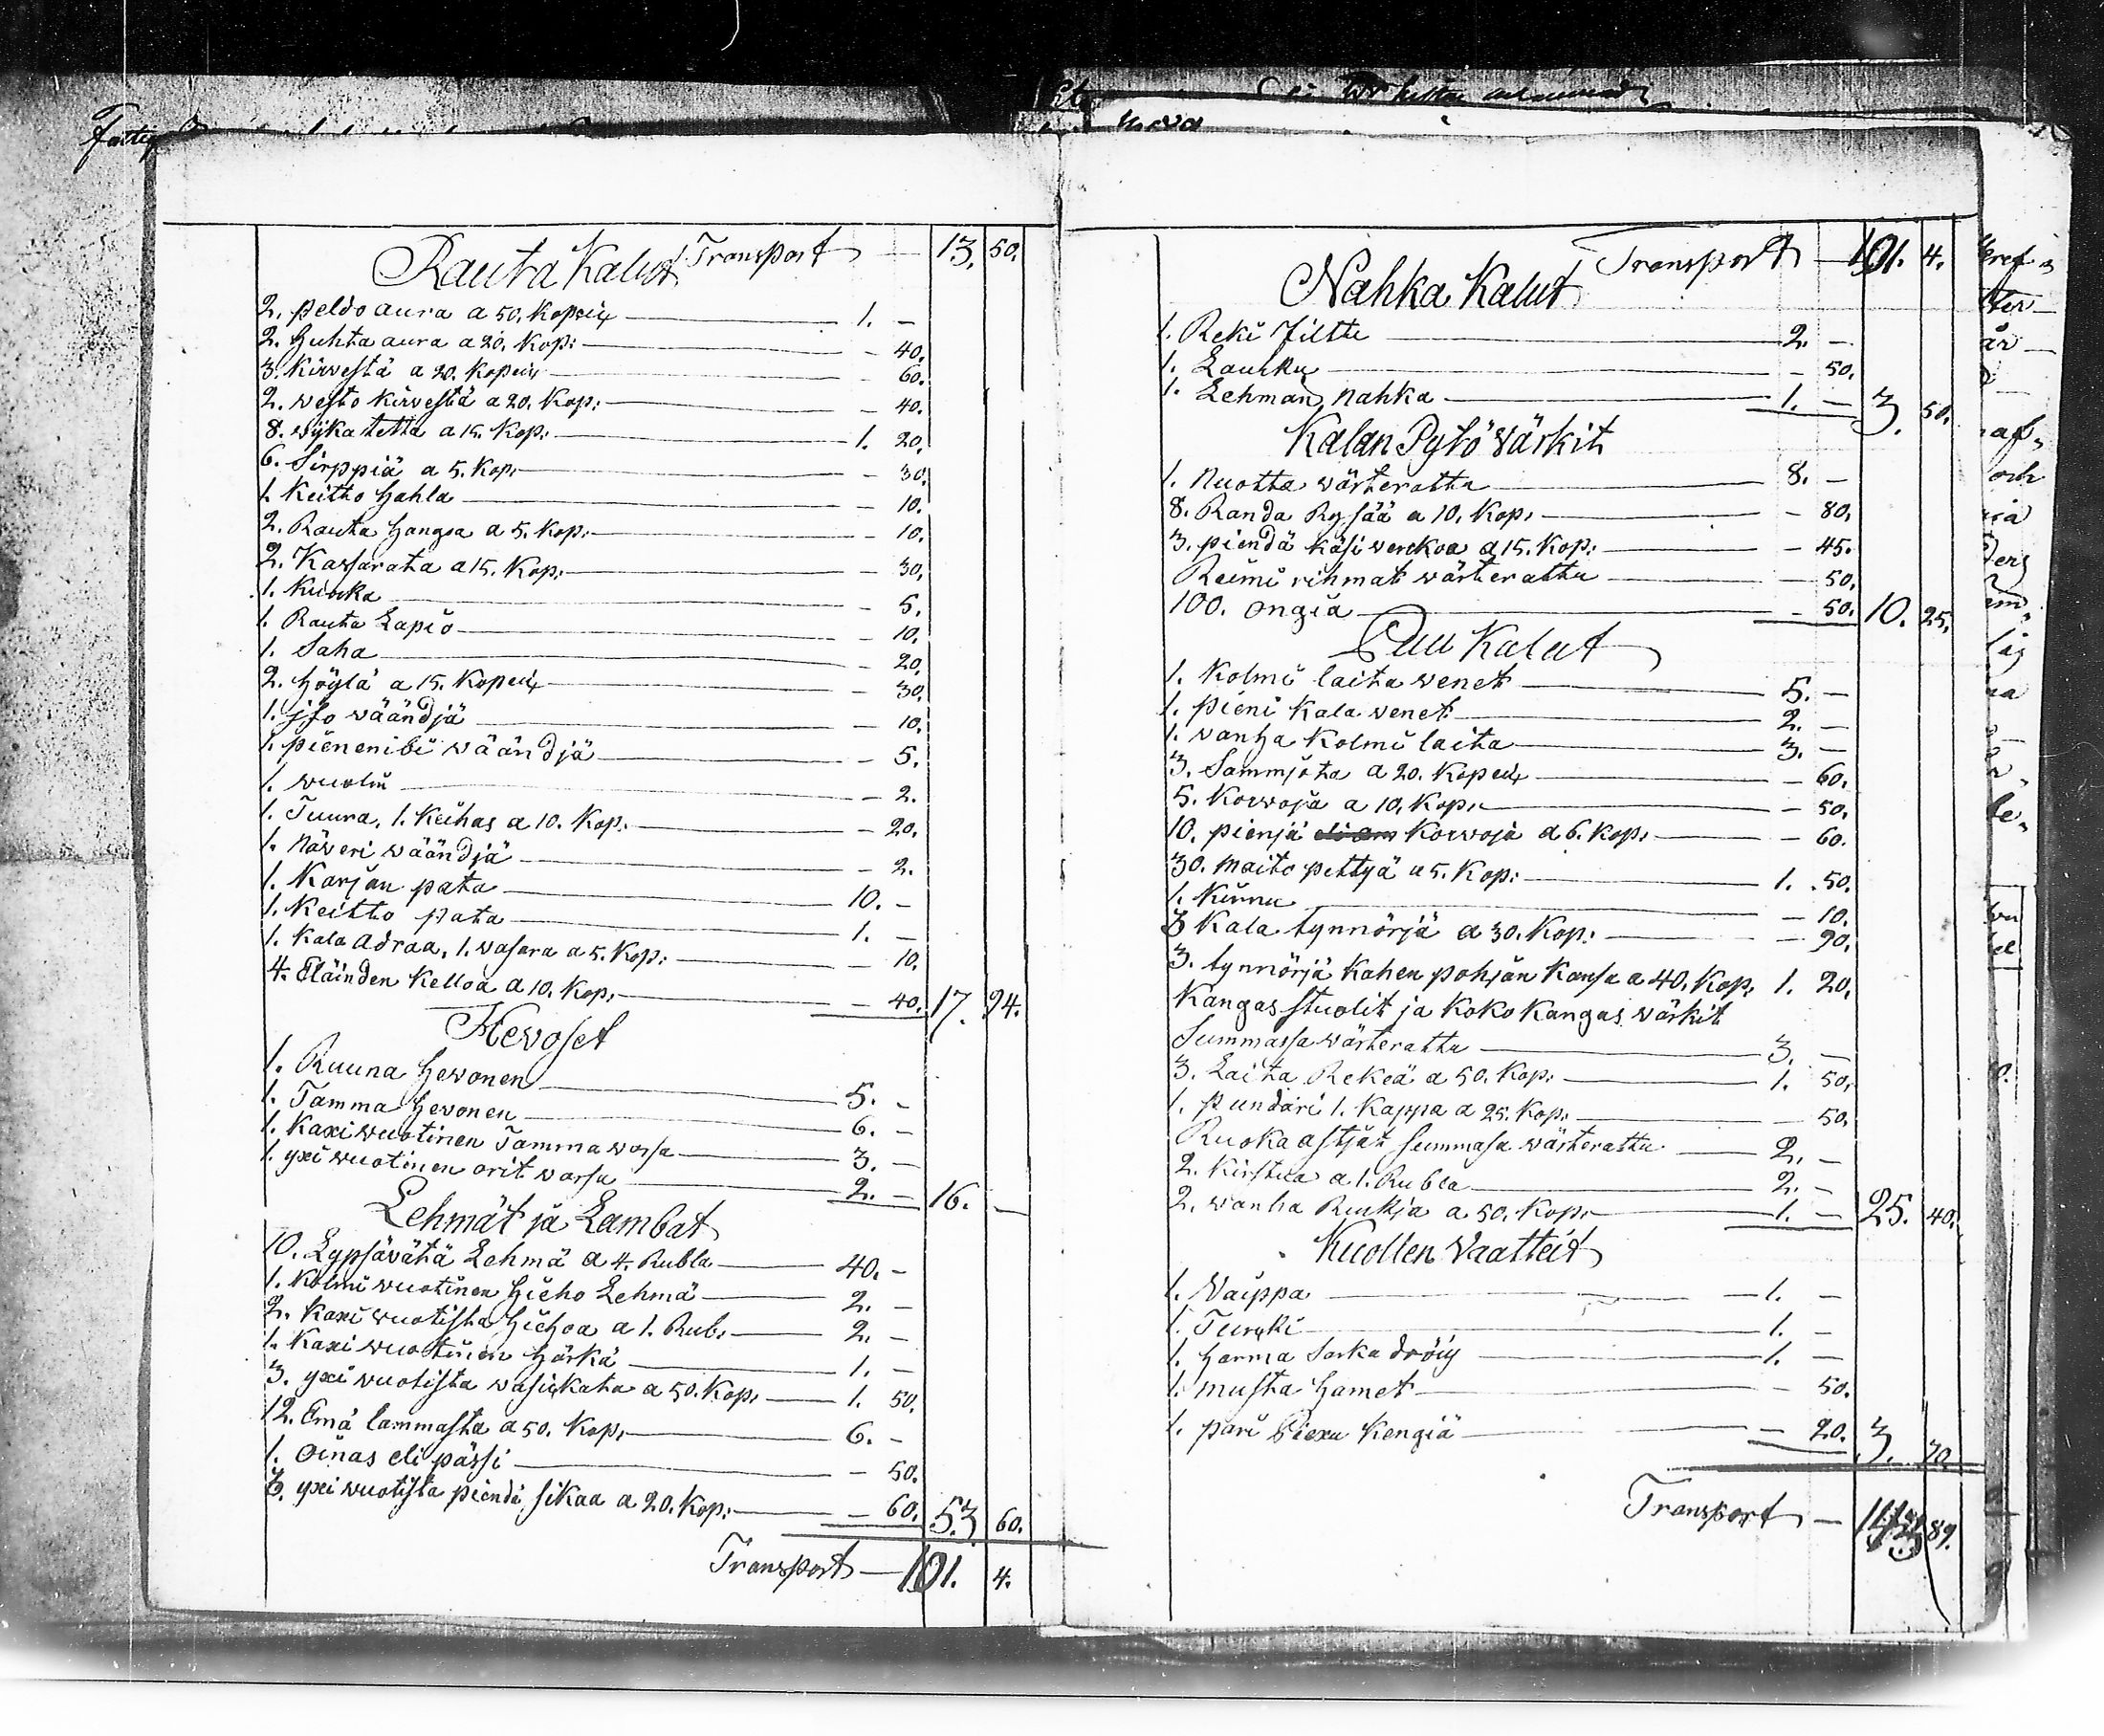 Transport — 13. 50.
Rauta Kalut
2. peldo aura a 50. Kopeix — 1. —
2. huhta aura a 20. Kop: — 40.
3. Kirvestä a 20. Kopeix — 60.
2. westo kirvestä a 20. Kop: — 40.
8. wijka tetta a 15. Kop: — 1. 20.
6. Sirppiä a 5. Kop: — 30.
1. Keitto hahla — 10.
2. Rauta hangoa a 5. Kop: — 10.
2. Kassarata a 15. Kop: — 30.
1. Kuocka — 5.
1. Rauta Lapio — 10.
1. Saha — 20.
2. höylä a 15. Kopeix — 30.
1. jso wäändjä — 10.
1. pienenibi wäändjä — 5.
1. wuolin — 2.
1. Tuura, 1. Keihas a 10. Kop: — 20.
1. Näweri wäändjä — 2.
1. Karjan pata — 10. —
1. Keitto pata — 1. —
1. Kala adraa, 1. wasara a 5. Kop: — 10.
4. Eläinden Kelloa a 10. Kop: — 40. 17. 94.
Hevoset
1. Ruuna hewonen — 5. —
1. Tamma hewonen — 6. —
1. Kaxi wuotinen Tamma warsa — 3. —
1. yxi wuotinen orit warsa — 2. — 16. —
Lehmät ja Lambat
10. Lypsävätä Lehmä a 4. Rubla — 40. —
1. Kolmi wuotinen hieho Lehmä — 2. —
2. Kaxi wuotista hiehoa a 1. Rub: — 2. —
1. Kaxi wuotinen härkä — 1. —
3. yxi wuotista wasickata a 50. Kop: — 1. 50.
12. Emä lammasta a 50. Kop: — 6. —
1. Oinas eli pässi — 50.
3. yxi wuotista piendä sikaa a 20. Kop: — 60. 53. 60.
Transport — 101. 4.
Transport — 101. 4.
Nahka Kalut
1. Reki — 2. —
1. Laucku — 50.
1. Lehmän nahka — 1. — 3. 50.
Kalan Pytö Wärkit
1. Nuotta wärterattu — 8. —
8. Randa Rysää a 10. Kop: — 80.
3. piendä käsi werckoa a 15. Kop: — 45.
Reimi rihmat wärterattu — 50.
100. ongia — 50. 10. 25.
Puu Kalut
1. Kolmi laita wenet — 5. —
1. pieni Kala wenet — 2. —
1. wanha Kolmi laita — 3. —
3. Sammjota a 20. Kopeix — 60.
5. Korwoja a 10. Kop: — 50.
10. pienjä Korwoja a 6. Kop: — 60.
30. maito pettyä a 5. Kop: — 1. 50.
1. Kirnu — 10.
3. Kala tynnörjä a 30. Kop: — 90.
3. tynnörjä Kahen pohjan Kansa a 40. Kop: 1. 20.
Kangas stuolit ja Koko Kangas wärkit
Summassa wärterattu — 3. —
3. Laita Rekeä a 50. Kop: — 1. 50.
1. pundari 1. Kappa a 25. Kop: — 50.
Ruoka astjat summasa wärterattu — 2. —
2. Kirstua a 1. Rubla — 2. —
2. wanha Ruckja a 50. Kop: — 1. — 25. 40.
Kuollen Vaatteit
1. Vaippa — 1. —
1. Turcki — 1. —
1. harma Sarka dröij — 1. —
1. musta hamet — 50.
1. pari Piexu Kengiä — 20. 3. 70.
Transport — 89.